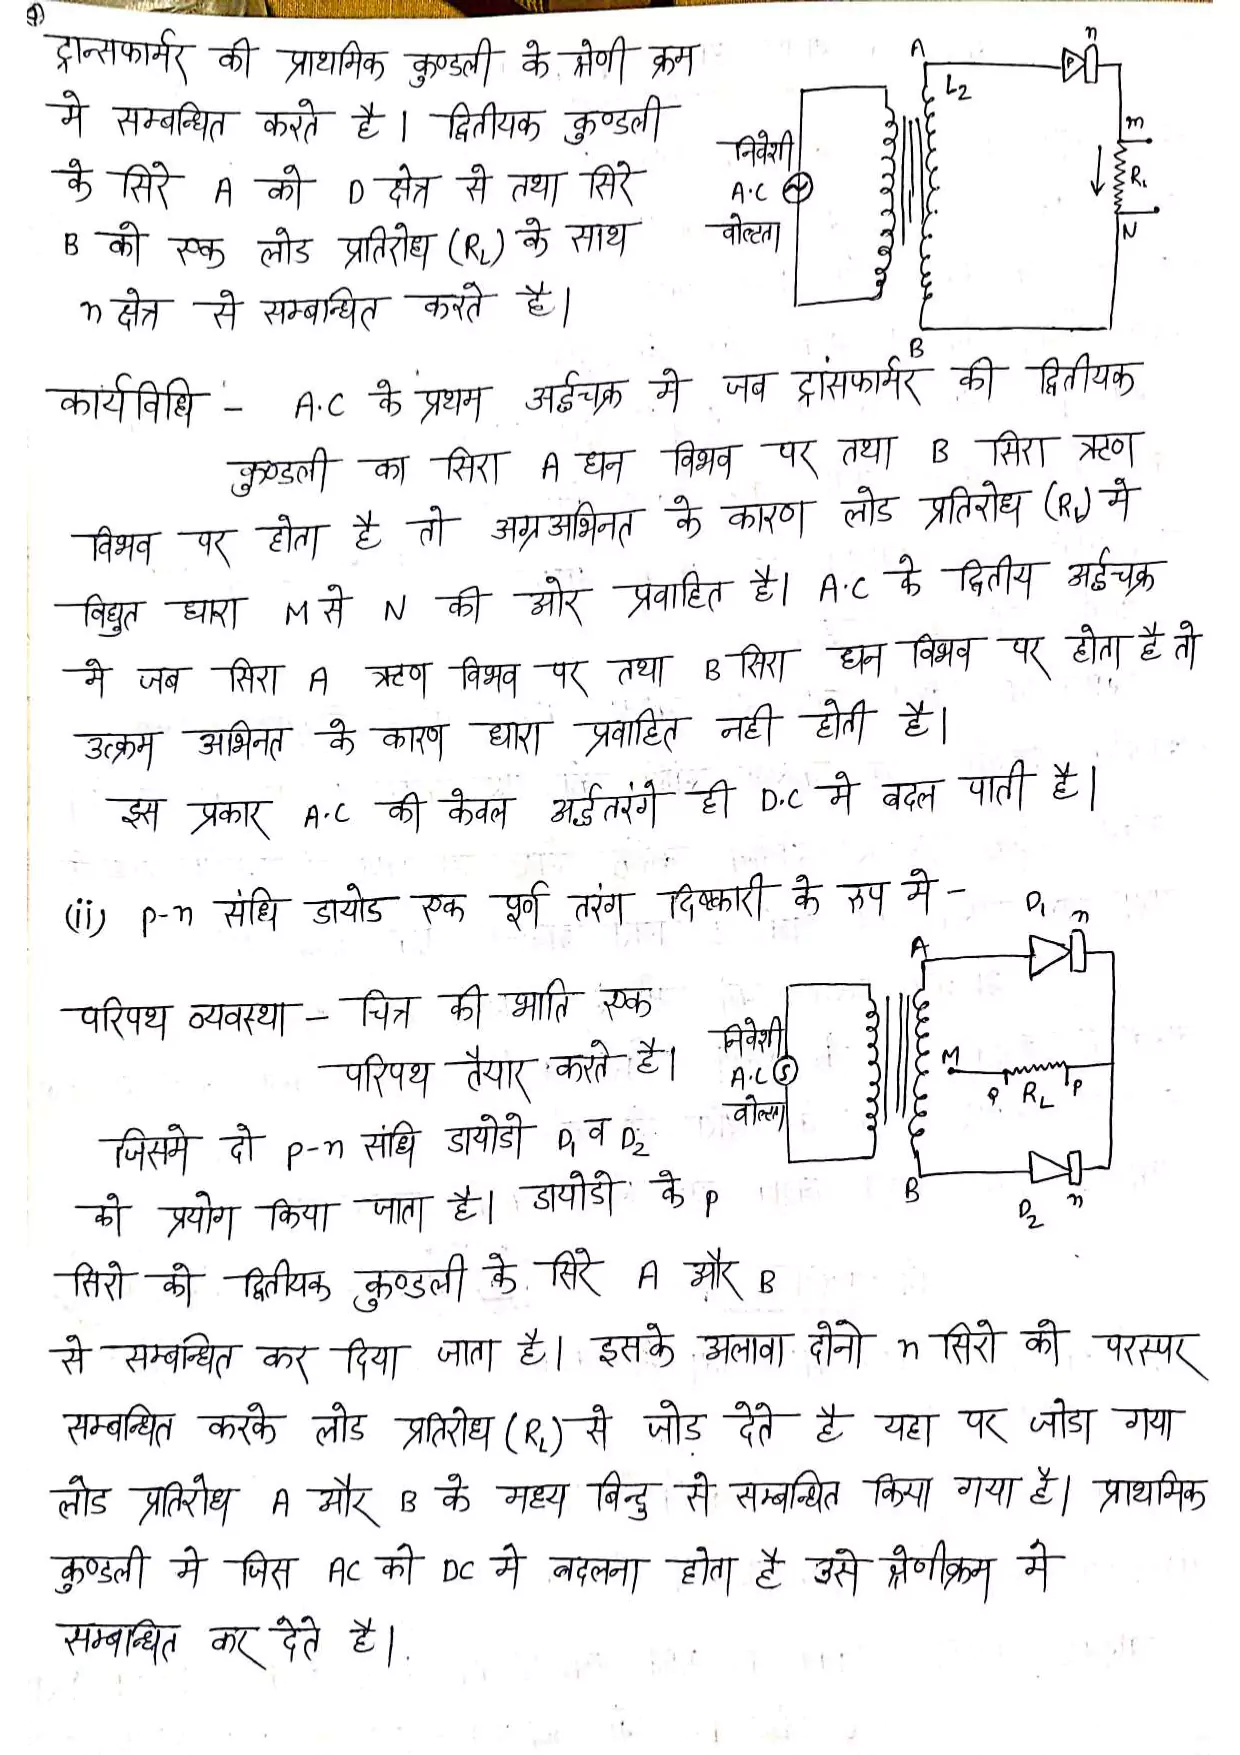 ट्रान्सफार्मर की प्राथमिक कुण्डली के श्रेणी क्रम
मे सम्बन्धित करते है। द्वितीयक कुण्डली
के सिरे A को D क्षेत्र से तथा सिरे
B को एक लोड प्रतिरोध (RL) के साथ
n क्षेत्र से सम्बन्धित करते है।
A
L2
P
n
m
RL
N
B
निवेशी
A.C
वोल्टता
कार्यविधि - A.C के प्रथम अर्द्धचक्र मे जब ट्रांसफार्मर की द्वितीयक
कुण्डली का सिरा A धन विभव पर तथा B सिरा ऋण
विभव पर होता है तो अग्रअभिनत के कारण लोड प्रतिरोध (RL) मे
विद्युत धारा M से N की ओर प्रवाहित है। A.C के द्वितीय अर्द्धचक्र
मे जब सिरा A ऋण विभव पर तथा B सिरा धन विभव पर होता है तो
उत्क्रम अभिनत के कारण धारा प्रवाहित नही होती है।
इस प्रकार A.C की केवल अर्द्धतरंगे ही D.C मे बदल पाती है।
(ii) p-n संधि डायोड एक पूर्ण तरंग दिष्कारी के रुप मे -
परिपथ व्यवस्था - चित्र की भाति एक
परिपथ तैयार करते है।
जिसमे दो p-n संधि डायोडो D1 व D2
को प्रयोग किया जाता है। डायोडो के p
D1
n
A
निवेशी
A.C S
वोल्टता
M
Q RL P
B
D2
n
सिरो को द्वितीयक कुण्डली के सिरे A और B
से सम्बन्धित कर दिया जाता है। इसके अलावा दोनो n सिरो को परस्पर
सम्बन्धित करके लोड प्रतिरोध (RL) से जोड़ देते है यहा पर जोडा गया
लोड प्रतिरोध A और B के मध्य बिन्दु से सम्बन्धित किया गया है। प्राथमिक
कुण्डली मे जिस AC को DC मे बदलना होता है उसे श्रेणीक्रम मे
सम्बन्धित कर देते है।